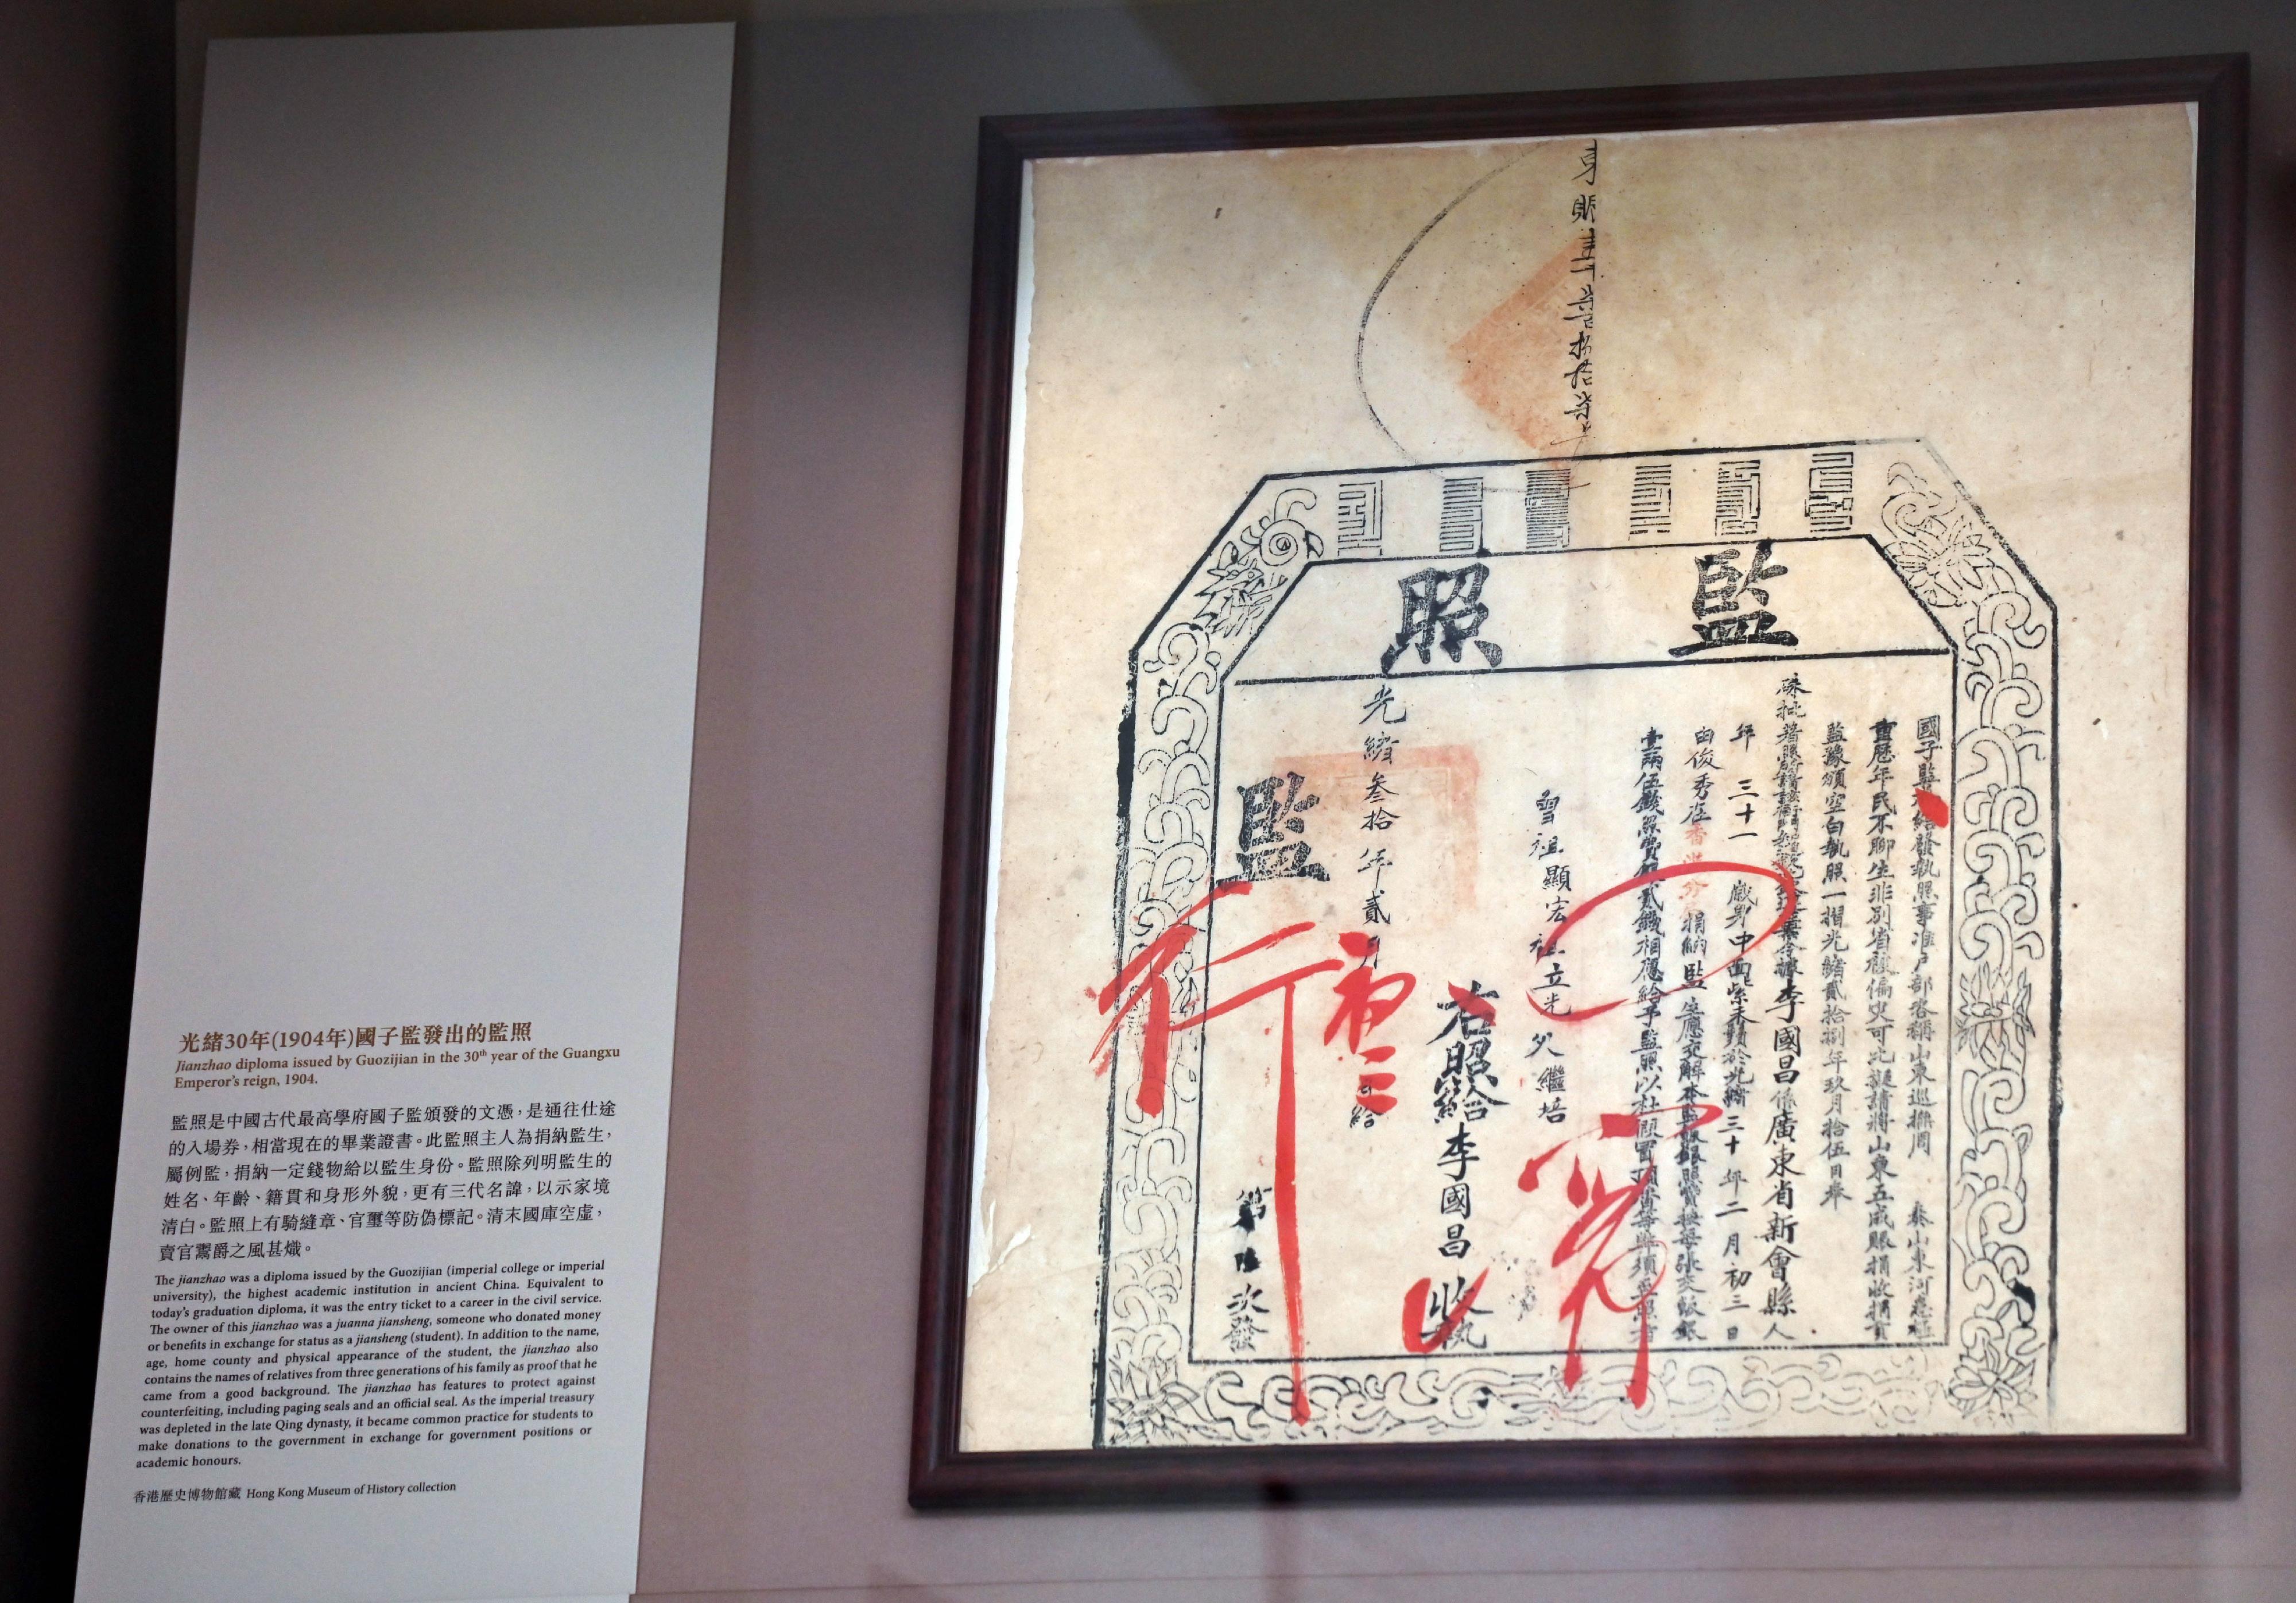 光緒30年(1904年)國子監發出的監照
Jianzhao diploma issued by Guozijian in the 30th year of the Guangxu
Emperor's reign, 1904.
監照是中國古代最高學府國子監頒發的文憑，是通往仕途
的入場券，相當現在的畢業證書。此監照主人為捐納監生，
屬例監，捐納一定錢物給以監生身份。監照除列明監生的
姓名、年齡、籍貫和身形外貌，更有三代名諱，以示家境
清白。監照上有騎縫章、官璽等防偽標記。清末國庫空虛，
賣官鬻爵之風甚熾。
The jianzhao was a diploma issued by the Guozijian (imperial college or imperial
university), the highest academic institution in ancient China. Equivalent to
today's graduation diploma, it was the entry ticket to a career in the civil service.
The owner of this jianzhao was a juanna jiansheng, someone who donated money
or benefits in exchange for status as a jiansheng (student). In addition to the name,
age, home county and physical appearance of the student, the jianzhao also
contains the names of relatives from three generations of his family as proof that he
came from a good background. The jianzhao has features to protect against
counterfeiting, including paging seals and an official seal. As the imperial treasury
was depleted in the late Qing dynasty, it became common practice for students to
make donations to the government in exchange for government positions or
academic honours.
香港歷史博物館藏 Hong Kong Museum of History collection
監照
國子監 給發執照事准戶部咨稱山東巡撫周 奏山東河
重歷年民不聊生非別省 偏災可比擬請將山東五成賑捐
監豫頒空白執照一摺光緒貳拾捌年玖月拾伍日奉
硃批著照 李國昌係廣東省新會縣人
年三十一歲身中面紫未鬚於光緒三十年二月初三日
由俊秀在 捐納監生應交解本
壹兩伍錢 費 貳錢相應給予監照以杜 冒頂
曾祖顯宏祖立光父繼培
右照給李國昌收執
光緒叁拾年貳月 給
監
第 次發